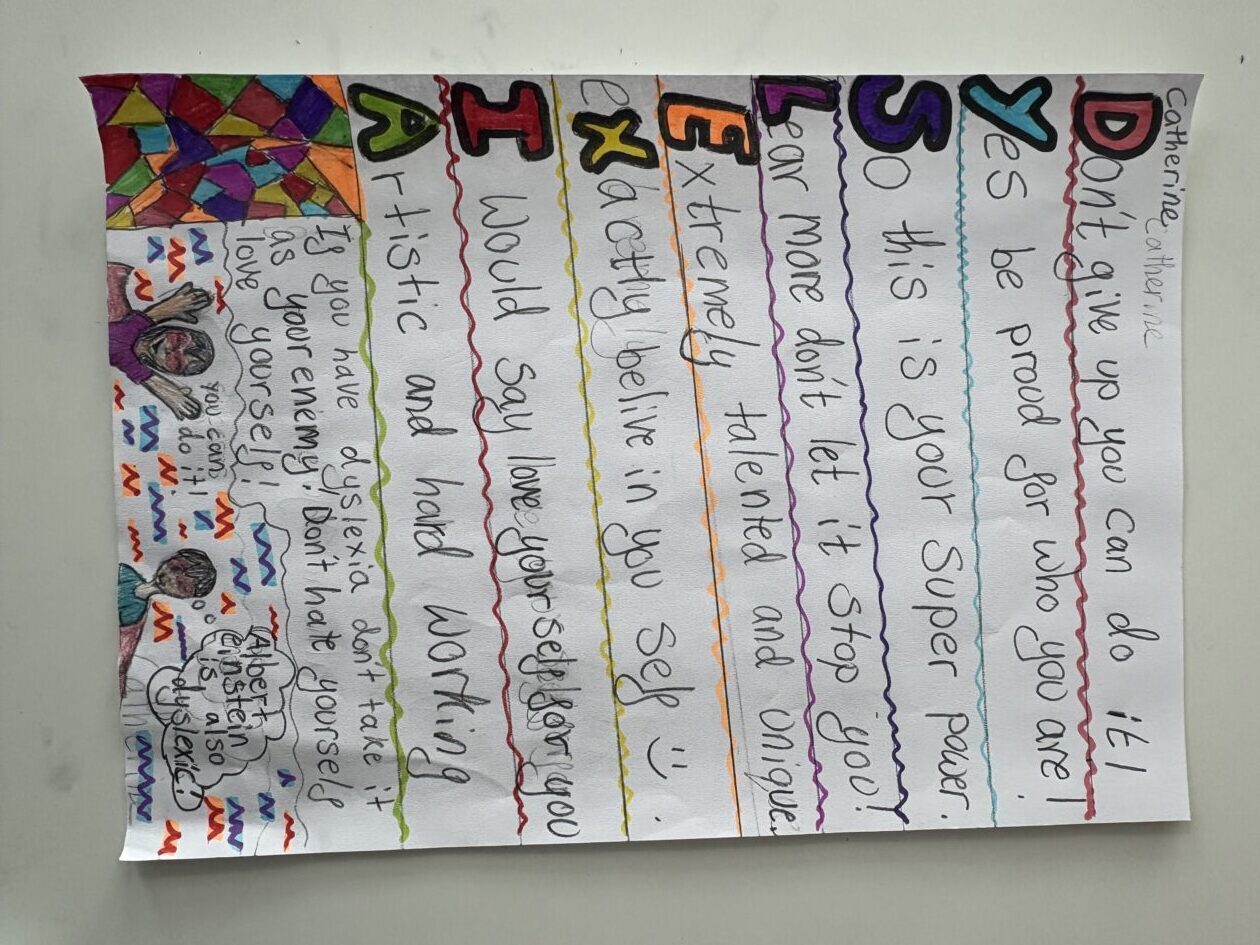 Catherine Catherine
Don't give up you can do it!
Yes be proud for who you are!
So this is your super power.
Lear more don't let it stop you!
Extremely talented and unique.
exacthy belive in you self :).
I would say love yourself for you
Artistic and hard working
If you have dyslexia don't take it
as your enemy, Don't hate yourself
love yourself!
you can
do it!
Albert
einstein
is also
dyslexic!